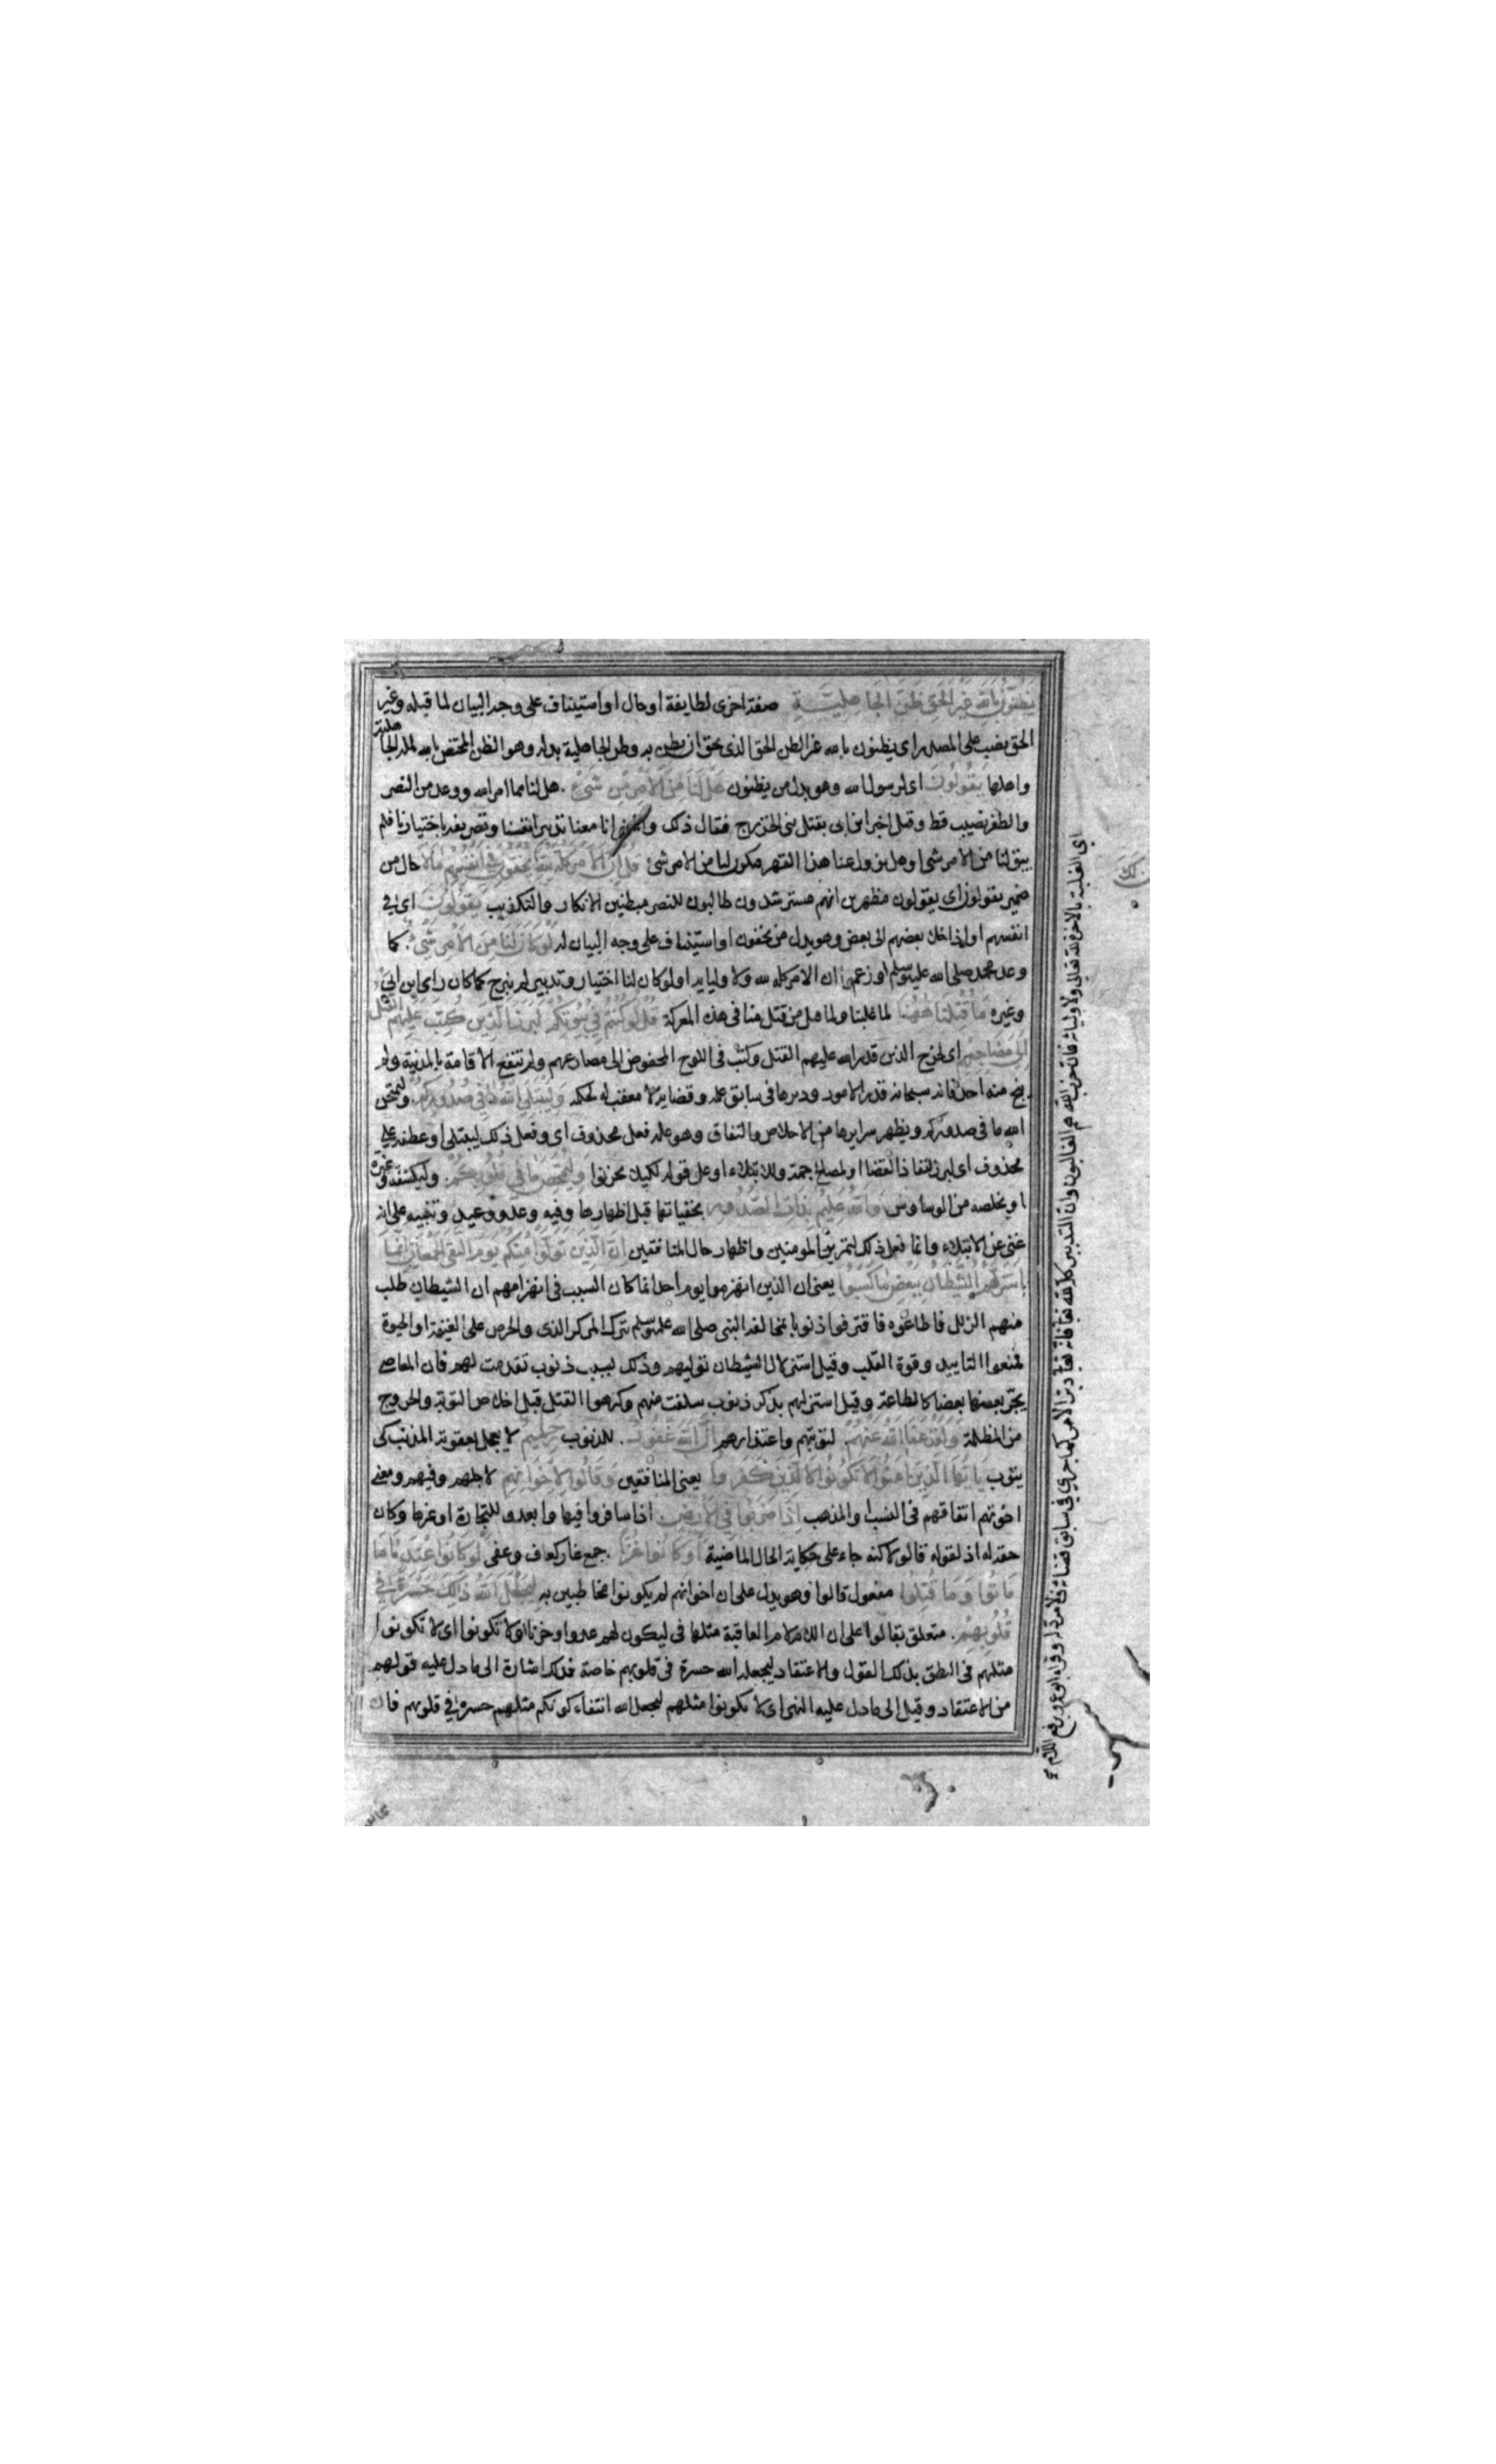 يَظُنُّونَ بِاللهِ غَيْرَ الْحَقِّ ظَنَّ الْجَاهِلِيَّةِ صفة اخرى لطايفة او حال او استيناف على وجه البيان لما قبله وغير
الحق نصب على المصدر اى يظنون بالله غير الظن الحق الذى يحق ان يظن به وظن الجاهلية بدله وهو الظن المختص بالملة الجاهلية
واهلها يَقُولُونَ اى لرسول الله وهو بدل من يظنون هَلْ لَنَا مِنَ الْأَمْرِ مِنْ شَيْءٍ . هل لنا مما امر الله ووعد من النصر
والظفر نصيب قط وقيل اخبر ابن ابى بقتل بنى الخزرج فقال ذلك والمعنى انا منعنا تدبير انفسنا وتصريفها باختيارنا فلم
يبق لنا من الامر شى او هل يزول عنا هذا القهر فيكون لنا من الامر شئ قُلْ إِنَّ الْأَمْرَ كُلَّهُ لِلَّهِ يُخْفُونَ فِي أَنْفُسِهِمْ مَالَا حال من
ضمير يقولون اى يقولون مظهرين انهم مسترشدون طالبون للنصر مبطنين الانكار والتكذيب يَقُولُونَ اى فى
انفسهم او اذا خلا بعضهم الى بعض وهو بدل من يخفون او استيناف على وجه البيان له لَوْ كَانَ لَنَا مِنَ الْأَمْرِ شَيْءٌ . كما
وعد محمد صلى الله عليه وسلم او زعم ان الامر كله لله ولا وليايه او لو كان لنا اختيار وتدبير لم نبرح كما كان راى ابن ابى
وغيره مَا قُتِلْنَا هٰهُنَا لما غلبنا ولما قتل من قتل منا فى هذه المعركة قُلْ لَوْ كُنْتُمْ فِي بُيُوتِكُمْ لَبَرَزَ الَّذِينَ كُتِبَ عَلَيْهِمُ الْقَتْلُ
إِلَى مَضَاجِعِهِمْ اى لخرج الذين قدر الله عليهم القتل وكتب فى اللوح المحفوظ الى مصارعهم ولم تنفع الاقامة بالمدينة ولم
ينج منه احد فانه سبحانه قدر الامور ودبرها فى سابق علمه وقضايه لا معقب لحكمه وَلِيَبْتَلِيَ اللهُ مَا فِي صُدُورِكُمْ . وليمتحن
الله ما فى صدوركم ويظهر سرايرها من الاخلاص والنفاق وهو علة فعل محذوف اى وفعل ذلك ليبتلى او عطف على
محذوف اى لبرز لنفاذ القضا او لمصالح جمة وللابتلاء او على قوله لكيلا تحزنوا وَلِيُمَحِّصَ مَا فِي قُلُوبِكُمْ . وليكشفه ويميزه
او يخلصه من الوساوس وَاللهُ عَلِيمٌ بِذَاتِ الصُّدُورِ بخفياتها قبل اظهارها وفيه وعد ووعيد وتنبيه على انه
غنى عن الابتلاء وانما فعل ذلك لتمرين المومنين واظهار حال المنافقين إِنَّ الَّذِينَ تَوَلَّوْا مِنْكُمْ يَوْمَ الْتَقَى الْجَمْعَانِ إِنَّمَا
اسْتَزَلَّهُمُ الشَّيْطَانُ بِبَعْضِ مَا كَسَبُوا يعنى ان الذين انهزموا يوم احد انما كان السبب فى انهزامهم ان الشيطان طلب
منهم الزلل فاطاعوه فاقترفوا ذنوبا بمخالفة النبى صلى الله عليه وسلم بترك المركز الذى والحرص على الغنيمة او الحيوة
فمنعوا التاييد وقوة القلب وقيل استزلال الشيطان توليهم وذلك بسبب ذنوب تقدمت لهم فان المعاصى
يجرّ بعضها بعضا كالطاعة وقيل استزلهم بذكر ذنوب سلفت منهم وكرهوا القتل قبل اخلاص التوبة والخروج
من المظلمة وَلَقَدْ عَفَا اللهُ عَنْهُمْ . لتوبتهم واعتذارهم إِنَّ اللهَ غَفُورٌ . للذنوب حَلِيمٌ لا يعجل بعقوبة المذنب كى
يتوب يَا أَيُّهَا الَّذِينَ آمَنُوا لَا تَكُونُوا كَالَّذِينَ كَفَرُوا يعنى المنافقين وَقَالُوا لِإِخْوَانِهِمْ لاجلهم وفيهم ومعنى
اخوتهم اتفاقهم فى النسب او المذهب إِذَا ضَرَبُوا فِي الْأَرْضِ . اذا سافروا فيها وابعدوا للتجارة او غيرها وكان
حقه له اذ لقوله قالوا لكنه جاء على حكاية الحال الماضية أَوْ كَانُوا غُزًّى . جمع غاز كعاف وعفى لَوْ كَانُوا عِنْدَنَا مَا
مَاتُوا وَمَا قُتِلُوا مفعول قالوا وهو يدل على ان اخوانهم لم يكونوا مخاطبين به لِيَجْعَلَ اللهُ ذَلِكَ حَسْرَةً فِي
قُلُوبِهِمْ . متعلق بقالوا على ان اللام لام العاقبة مثلها فى ليكون لهم عدوا وحزنا او لا تكونوا اى لا تكونوا
مثلهم فى النطق بذلك القول والاعتقاد ليجعله الله حسرة فى قلوبهم خاصة فذلك اشارة الى ما دل عليه قولهم
من الاعتقاد وقيل الى ما دل عليه النهى اى لا تكونوا مثلهم ليجعل الله انتفاء كونكم مثلهم حسرة فى قلوبهم فان
اى الغلبة بالاخرة لله تعالى ولاوليائه فان حزب الله هم الغالبون او ان التدبير كله لله تعالى فانه تعالى دبر الامر كما جرى فى سابق قضائه